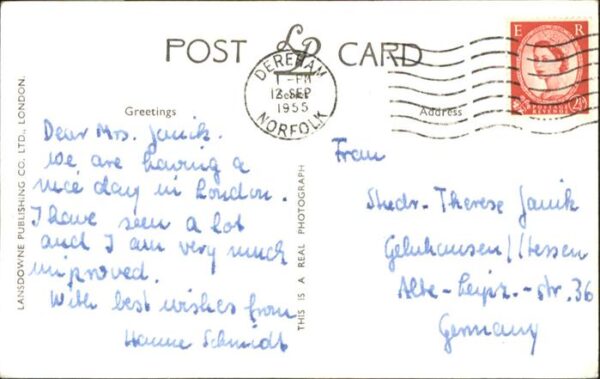 POST LP CARD
DEREHAM
1 - PM
12 SEP
1955
NORFOLK
E R
Greetings
Address
Dear Mrs. Janik.
We are having a
nice day in London.
I have seen a lot
and I am very much
improved.
With best wishes from
Hanne Schmidt
Frau
Stedr. Therese Janik
Gelnhausen // Hessen
Alte-Leipz.-str. 36
Germany
LANSDOWNE PUBLISHING CO. LTD., LONDON.
THIS IS A REAL PHOTOGRAPH